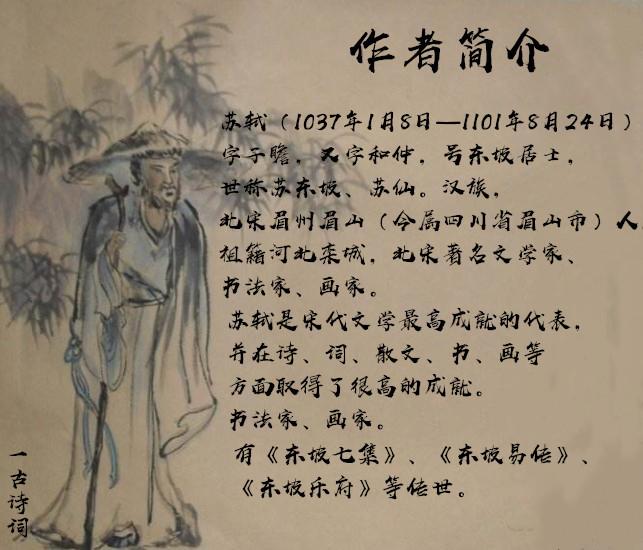 作者简介
苏轼（1037年1月8日—1101年8月24日）
字子瞻，又字和仲，号东坡居士，
世称苏东坡、苏仙。汉族，
北宋眉州眉山（今属四川省眉山市）人，
祖籍河北栾城，北宋著名文学家、
书法家、画家。
苏轼是宋代文学最高成就的代表，
并在诗、词、散文、书、画等
方面取得了很高的成就。
书法家、画家。
有《东坡七集》、《东坡易传》、
《东坡乐府》等传世。
一古诗词